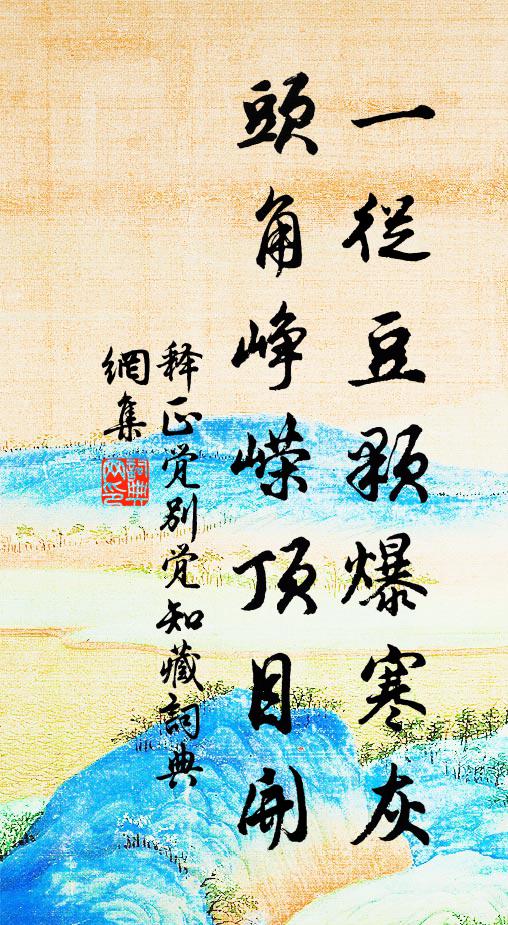 一從豆顆爆寒灰
頭角峥嶸顶目開
释正觉别觉知藏詞典
網集
詞典